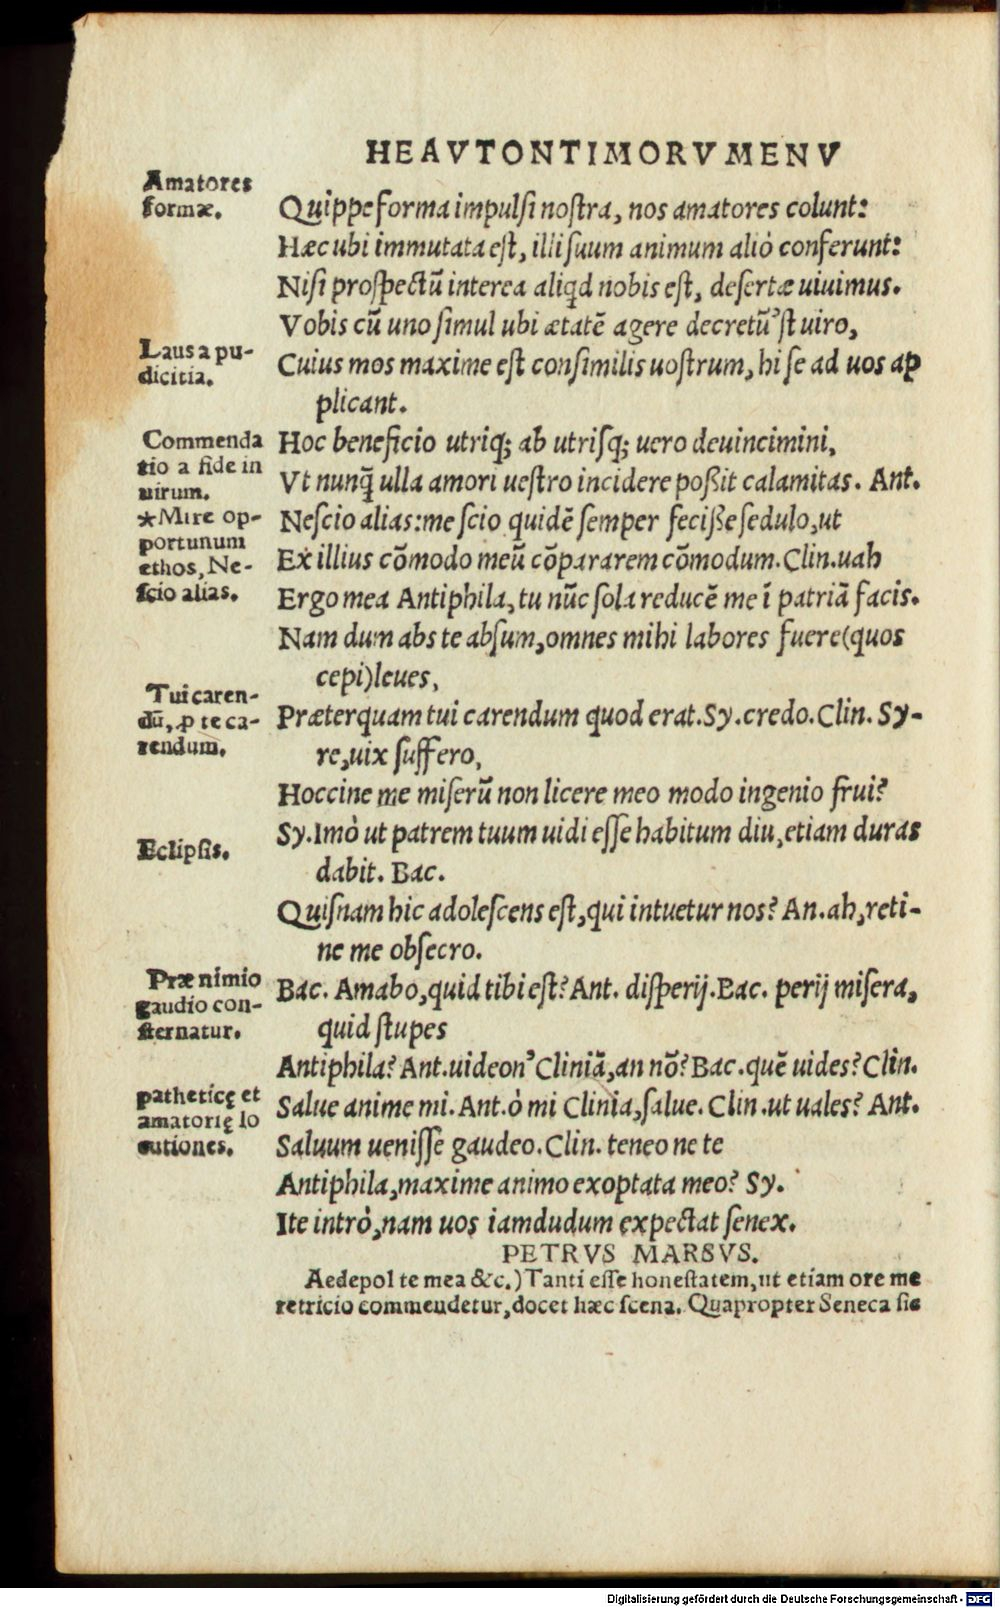 HEAVTONTIMORVMENV
Amatores
formæ.
Quippe forma impulsi nostra, nos amatores colunt:
Hæc ubi immutata est, illi suum animum aliò conferunt:
Nisi prospectū interea aliqd nobis est, desertæ uiuimus.
Vobis cū uno simul ubi ætatē agere decretū'st uiro,
Laus a pu-
dicitia.
Cuius mos maxime est consimilis uostrum, hi se ad uos ap
plicant.
Commenda
tio a fide in
uirum.
Hoc beneficio utriq; ab utrisq; uero deuincimini,
Vt nunq̄ ulla amori uestro incidere poßit calamitas. Ant.
*Mire op-
portunum
ethos, Ne-
scio alias.
Nescio alias: me scio quidē semper feciße sedulo, ut
Ex illius cōmodo meū cōpararem cōmodum. Clin. uah
Ergo mea Antiphila, tu nūc sola reducē me ī patriā facis.
Nam dum abs te absum, omnes mihi labores fuere (quos
cepi) leues,
Tui caren-
dū, ꝓ te ca-
rendum.
Præterquam tui carendum quod erat. Sy. credo. Clin. Sy-
re, uix suffero,
Hoccine me miserū non licere meo modo ingenio frui?
Eclipsis.
Sy. Imò ut patrem tuum uidi esse habitum diu, etiam duras
dabit. Bac.
Quisnam hic adolescens est, qui intuetur nos? An. ah, reti-
ne me obsecro.
Præ nimio
gaudio con-
sternatur.
Bac. Amabo, quid tibi est? Ant. disperij. Bac. perij misera,
quid stupes
Antiphila? Ant. uideon' Cliniā, an nō? Bac. quē uides? Clin.
patheticę et
amatorię lo
cutiones.
Salue anime mi. Ant. ò mi Clinia, salue. Clin. ut uales? Ant.
Saluum uenisse gaudeo. Clin. teneo ne te
Antiphila, maxime animo exoptata meo? Sy.
Ite intrò, nam uos iamdudum expectat senex.
PETRVS MARSVS.
Aedepol te mea &c.) Tanti esse honestatem, ut etiam ore me
retricio commendetur, docet hæc scena. Quapropter Seneca sic
Digitalisierung gefördert durch die Deutsche Forschungsgemeinschaft - DFG